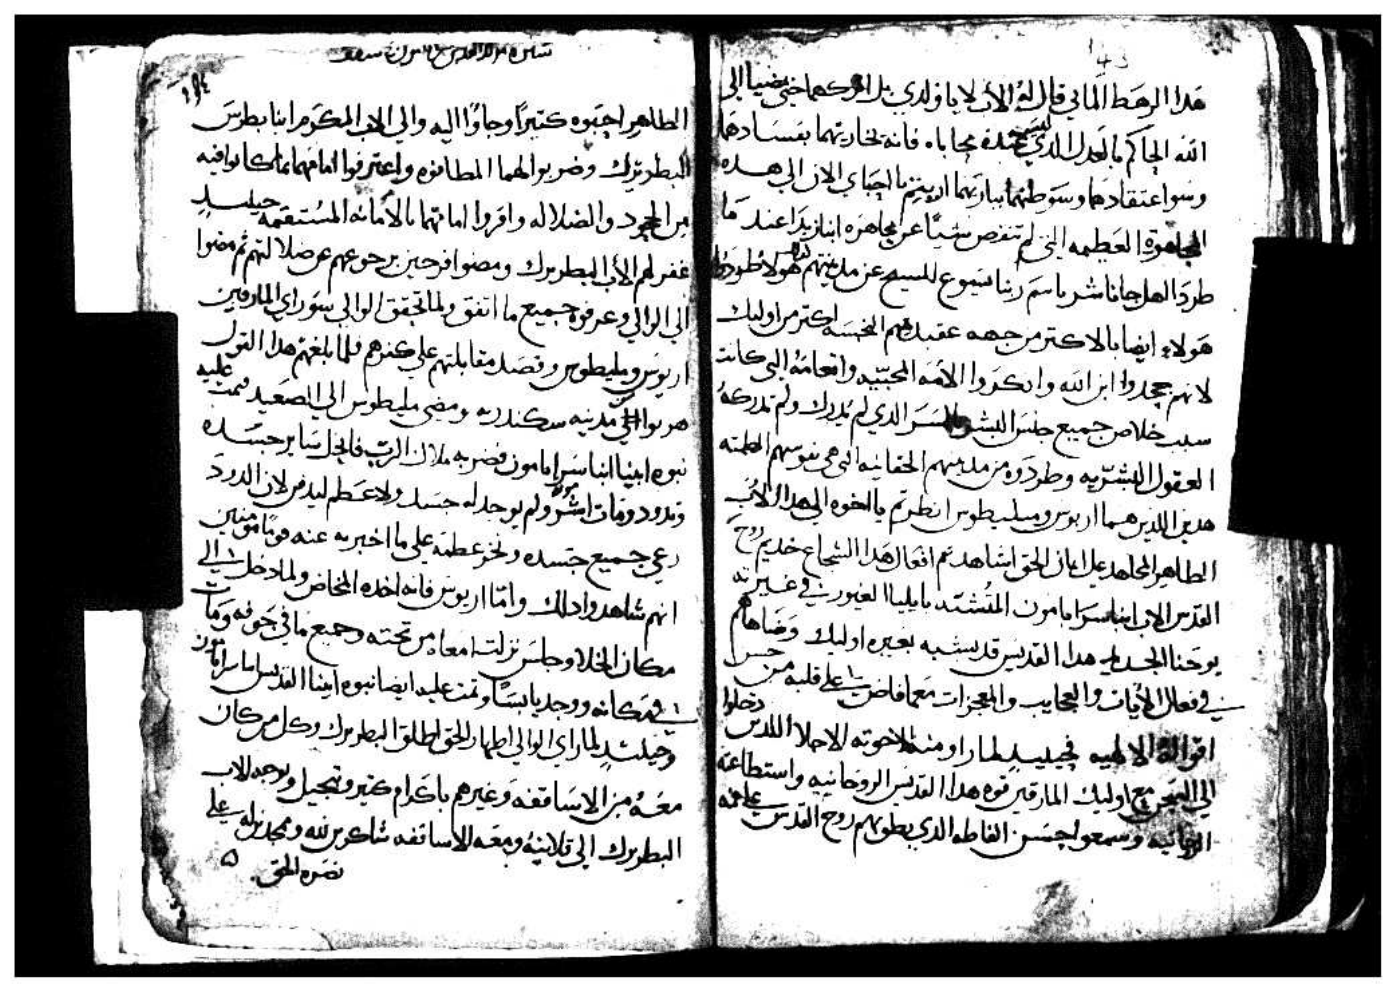 هذا الرهط الماني قال له الاب لا يا ولدي بل اتركهما حتى يمضيا الى
الله الحاكم بالعدل الذي ليس عنده محاباه فانه يجازيهما بفسادهما
وسو اعتقادهما وسوطهما اريتم يا احباي الان الى هذه
المجاهرة العظيمه التي لم تنقص شياً عن مجاهره ابنا عند ما
طرد اهل جاناشر باسم ربنا يسوع المسيح عن مدينتهم هولا طردوا
هولاء ايضا بالاكتر من جهه لخمسه اكتر من اوليك
لانهم جحدوا ابن الله وانكروا وانعامه التي كانت
سبب خلاص جميع جنس البشر السر الذي لم يدرك ولم تدركه
العقول البشريه وطردوه من مدينتهم الحقانيه التي هي نفوسهم
هدين اللدين هما اريوس ومليطوس انظرتم يا اخوه الى هذا الاب
الطاهر المجاهد على امان الحق اشاهدتم افعال هذا الشجاع خديم روح
القدس الاب انبا سرابامون المتشبه بايليا الغيور في غيرته
يوحنا هذا القديس قد يشبه بغيره اوليك وضاهاهم
في فعال الايات والعجايب والمعجزات مع ما فاض على قلبه من حسن
اقواله الالهيه فحينيد لما راو منه اللدين دخلوا
الى السجن مع اوليك المارقين قوه هذا القديس الروحانيه واستطاعته
وسمعوا حسن الفاظه الذي ينطق بهم روح القدس على فمه
١٩٤
الطاهر احبوه كتيراً وجاوا اليه والى الاب المكرم انبا بطرس
البطريرك وضربوا لهما المطانوه واعترفوا امامهما بما كانوا فيه
من الجحود والضلاله واقروا امامهما بالامانه المستقيمه حينيد
غفر لهم الاب البطريرك ومضوا فرحين برجوعهم عن ضلالتهم ثم مضوا
الى الوالي وعرفوه جميع ما اتفق ولما تحقق الوالي سو راي المارقين
اريوس ومليطوس وقصد مقابلتهم على كفرهم فلما بلغهم هذا القول
هربوا من مدينه سكندريه ومضى مليطوس الى الصعيد فتمت عليه
نبوه ابينا انبا سرابامون فضربه ملاك الرب فانحل ساير جسده
وتدود ومات اشر موته ولم يوجد له جسد ولا عظم ليدفن لان الدود
رعى جميع جسده ونخر عظمه على ما اخبر به عنه قوماً مومنين
انهم شاهدوا دلك واما اريوس فانه اخده المخاض ولما دخل الى
مكان الخلا وجلس نزلت امعاه من تحته وجميع ما في جوفه ومات
في مكانه ووجد يابساً وتمت عليه ايضا نبوه ابينا القديس انبا سرابامون
وحينئد لما راي الوالي اظهار الحق اطلق البطريرك وكل من كان
معه من الاساقفه وغيرهم باكرام كتير وتبجيل وتوجه الاب
البطريرك الى قلايته ومعه الاساقفه شاكرين لله وممجدين له على
نصره الحق